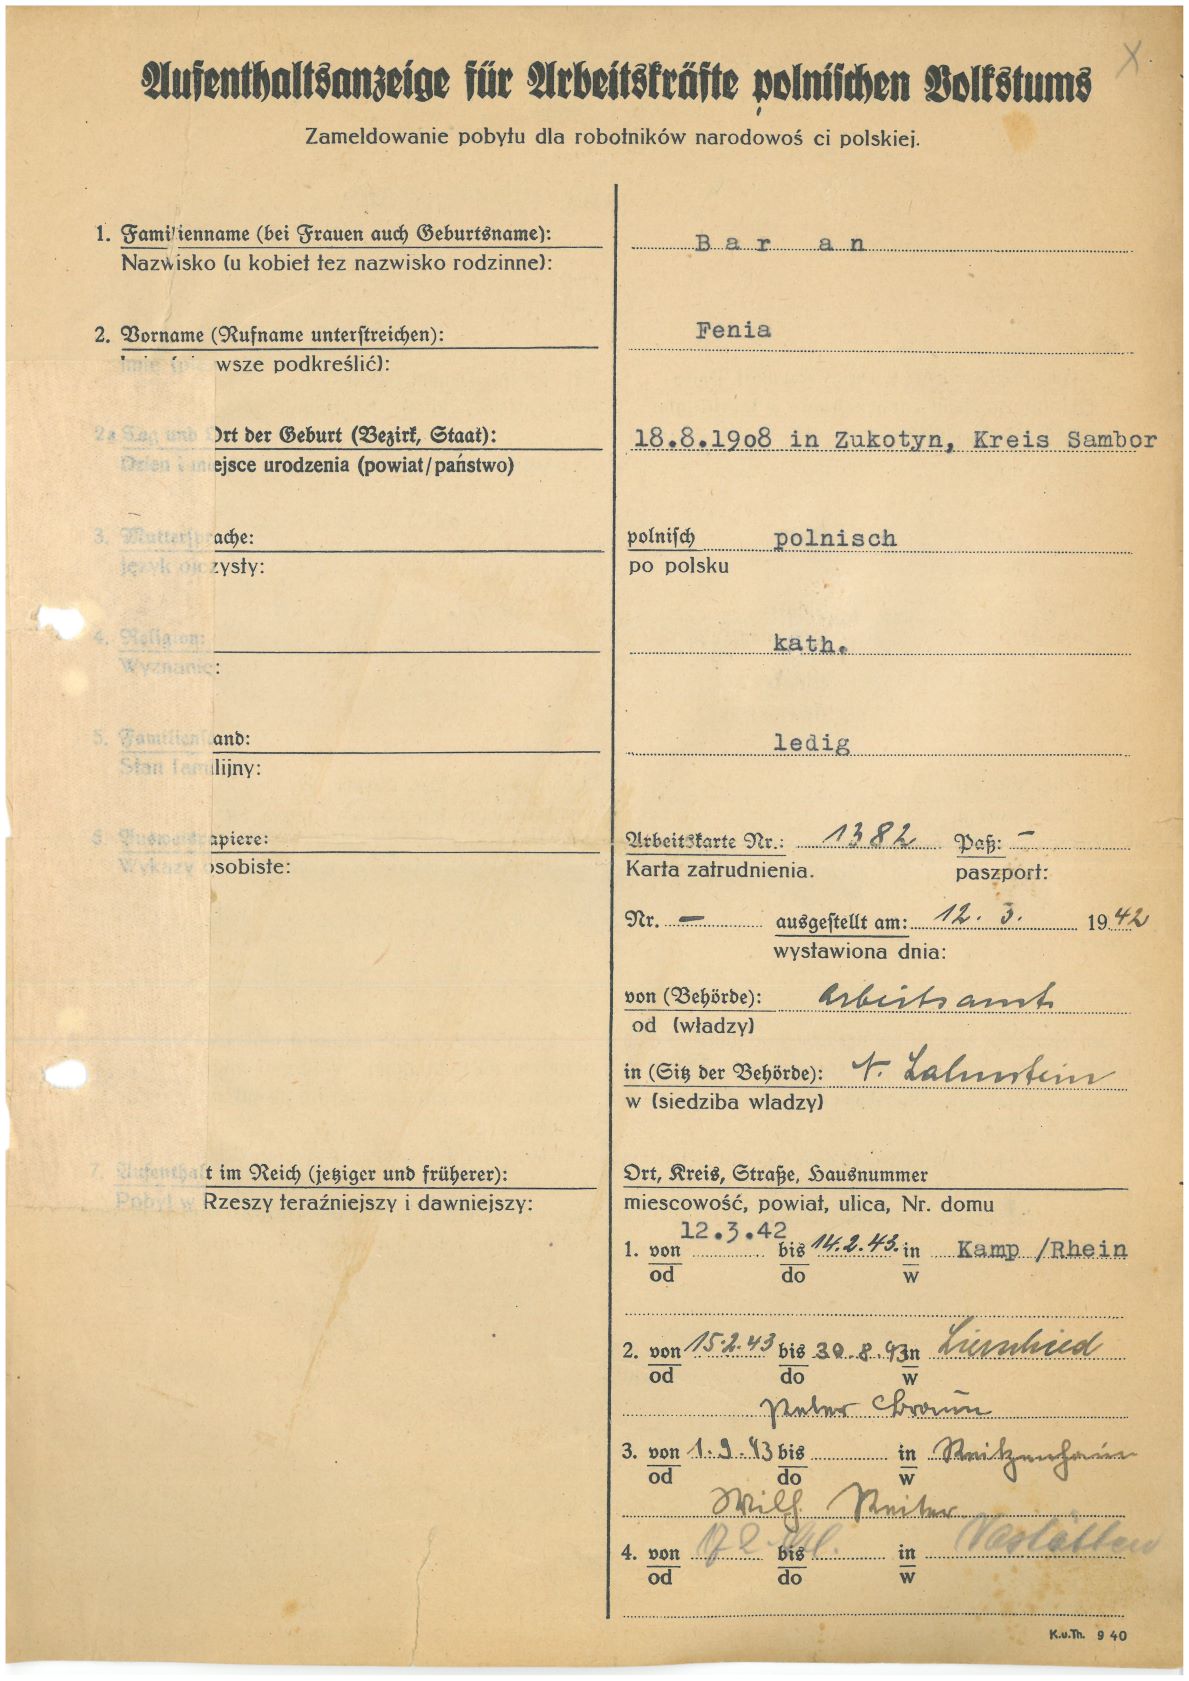 X
Aufenthaltsanzeige für Arbeitskräfte polnischen Volkstums
Zameldowanie pobytu dla robotników narodowoś ci polskiej.
1. Familienname (bei Frauen auch Geburtsname): Bar an
Nazwisko (u kobiet tez nazwisko rodzinne):
2. Vorname (Rufname unterstreichen): Fenia
Imię (pierwsze podkreślić):
2a Tag und Ort der Geburt (Bezirk, Staat): 18.8.1908 in Zukotyn, Kreis Sambor
Dzień i miejsce urodzenia (powiat/państwo)
3. Muttersprache: polnisch polnisch
język ojczysty: po polsku
4. Religion: kath.
Wyznanie:
5. Familienstand: ledig
Stan familijny:
6. Ausweispapiere: Arbeitskarte Nr.: 1382 Paß: –
Wykazy osobiste: Karta zatrudnienia. paszport:
Nr. – ausgestellt am: 12. 3. 1942
wystawiona dnia:
von (Behörde): Arbeitsamt
od (władzy)
in (Sitz der Behörde): N. Lahnstein
w (siedziba wladzy)
7. Aufenthalt im Reich (jetziger und früherer): Ort, Kreis, Straße, Hausnummer
Pobyt w Rzeszy teraźniejszy i dawniejszy: miescowość, powiat, ulica, Nr. domu
1. von 12.3.42 bis 14.2.43. in Kamp /Rhein
od do w
2. von 15.2.43 bis 30.8.43 in Lierschied
od do w
Peter Braun
3. von 1.9.43 bis in Reitzenhain
od do w
Wilh. Reiter
4. von bis in Nastätten
od do w
K.u.Th. 9 40